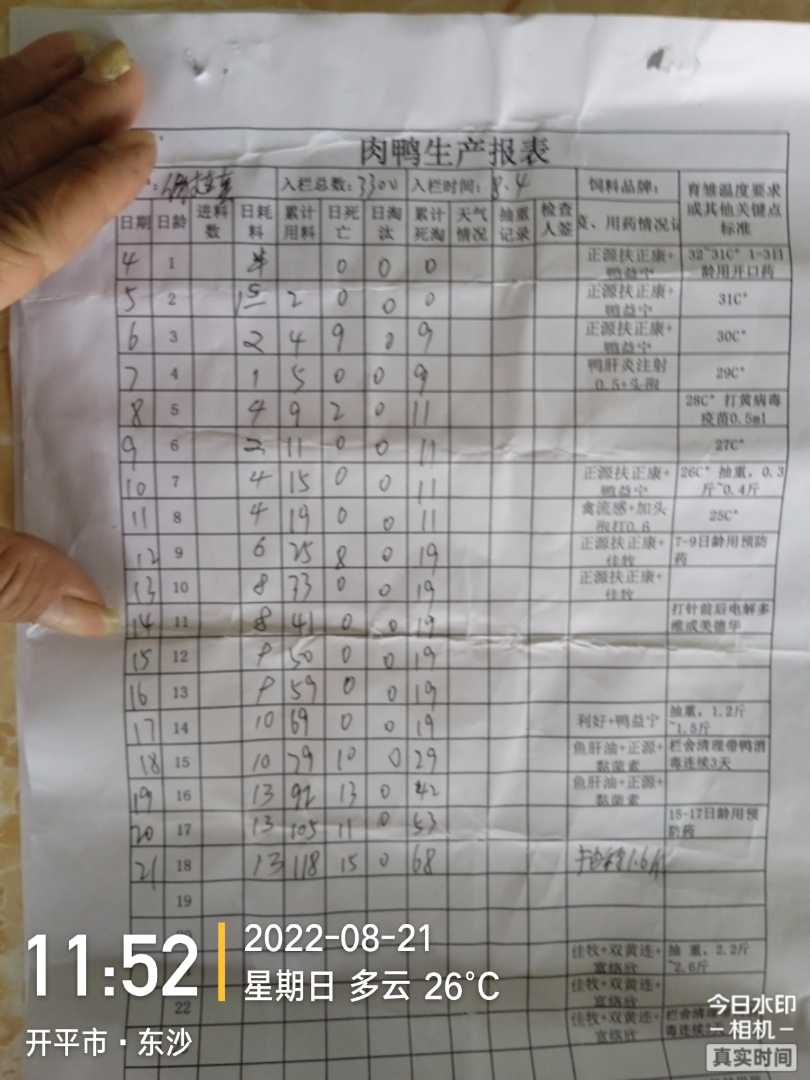 肉鸭生产报表
入栏总数：3300 入栏时间：8.4 饲料品牌： 育雏温度要求或其他关键点标准
日期 日龄 进料数 日耗料 累计用料 日死亡 日淘汰 累计死淘 天气情况 抽重记录 检查人签 疫、用药情况记
4 1 0 0 0 正源扶正康+鸭益宁 32~31C° 1-3日龄用开口药
5 2 2 0 0 0 正源扶正康+鸭益宁 31C°
6 3 2 4 9 0 9 正源扶正康+鸭益宁 30C°
7 4 1 5 0 0 9 鸭肝炎注射0.5+头孢 29C°
8 5 4 9 2 0 11 28C° 打黄病毒疫苗0.5ml
9 6 2 11 0 0 11 27C°
10 7 4 15 0 0 11 正源扶正康+鸭益宁 26C° 抽重，0.3斤~0.4斤
11 8 4 19 0 0 11 禽流感+加头孢打0.6 25C°
12 9 6 25 8 0 19 正源扶正康+佳牧 7-9日龄用预防药
13 10 8 33 0 0 19 正源扶正康+佳牧
14 11 8 41 0 0 19 打针前后电解多维或美德华
15 12 9 50 0 0 19
16 13 9 59 0 0 19
17 14 10 69 0 0 19 利好+鸭益宁 抽重，1.2斤~1.5斤
18 15 10 79 10 0 29 鱼肝油+正源+黏菌素 栏舍清理带鸭消毒连续3天
19 16 13 92 13 0 42 鱼肝油+正源+黏菌素
20 17 13 105 11 0 53 15-17日龄用预防药
21 18 13 118 15 0 68 1.6斤
19
佳牧+双黄连+富络欣 抽 重，2.2斤~2.6斤
佳牧+双黄连+富络欣
22 佳牧+双黄连+富络欣 栏舍清理
毒连续
11:52
2022-08-21
星期日 多云 26°C
开平市·东沙
今日水印
相机
真实时间